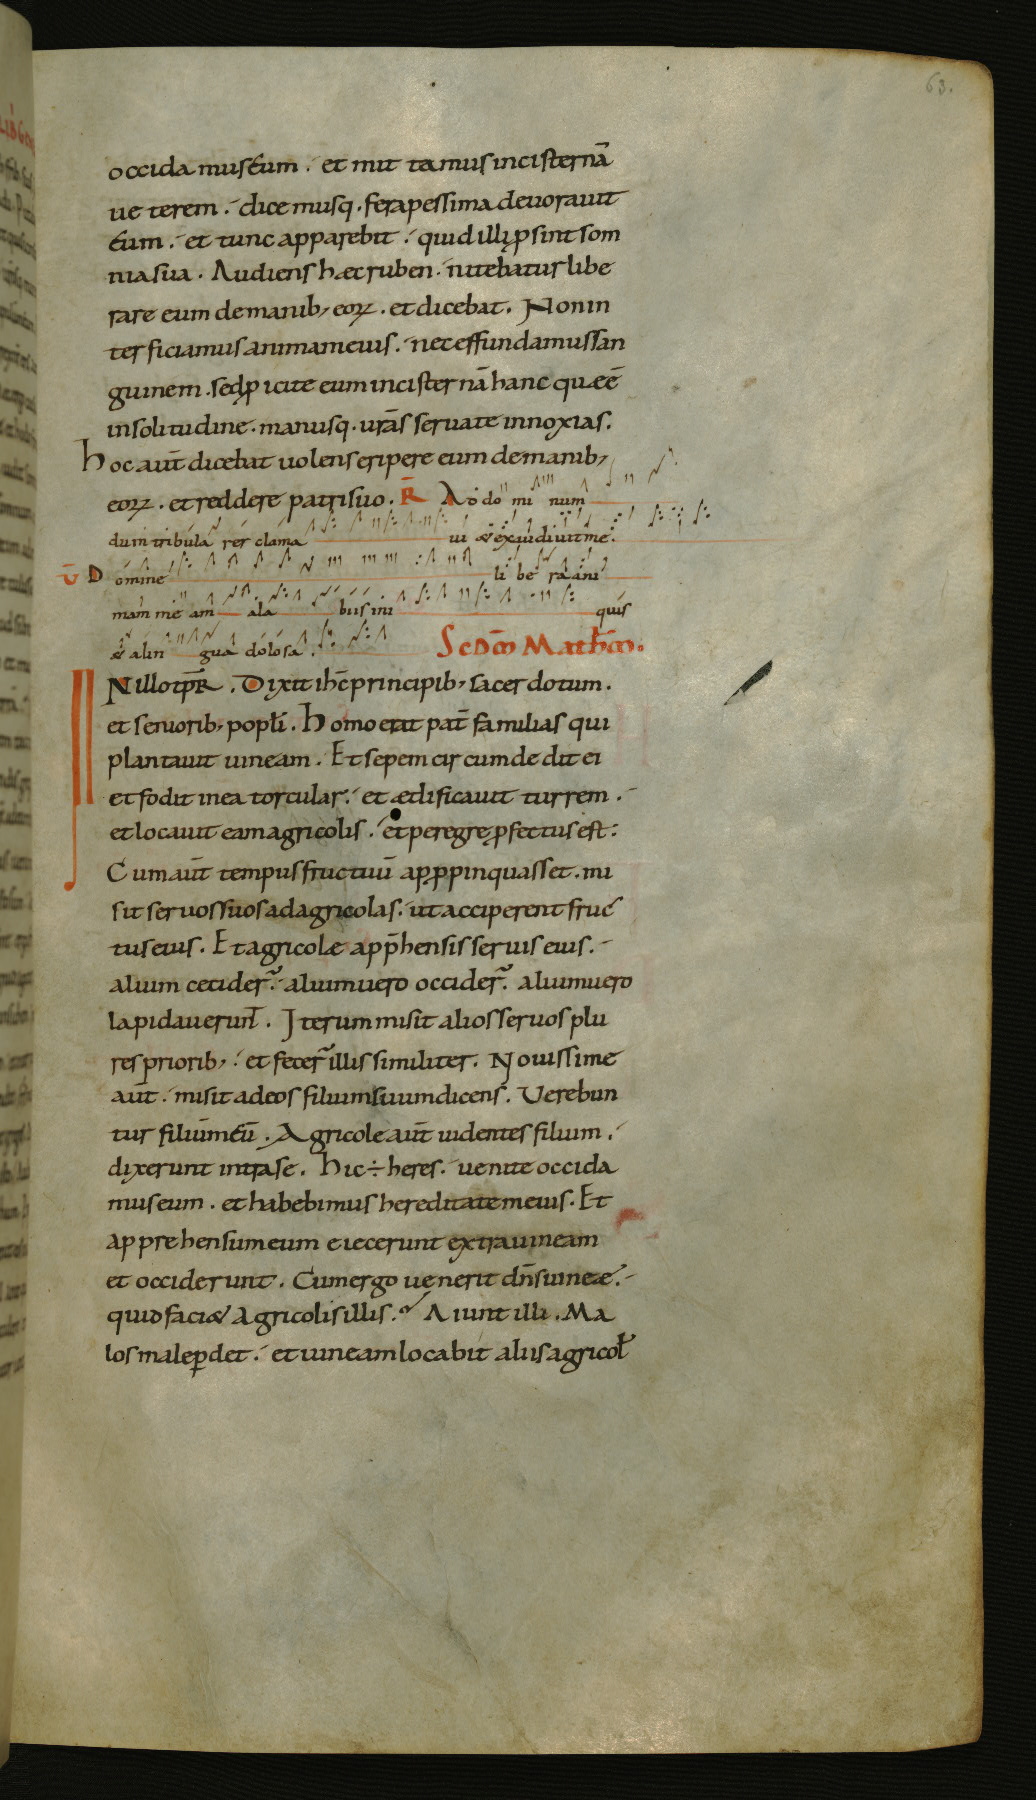 63.
occida mus eum. et mit tamus incisternā
ue terem. dicemusq. fera pessima deuorauit
eum. et tunc apparebit. quid illi ꝓsint som
nia sua. Audiens hæc ruben. nitebatur libe
rare eum de manib; eoꝝ. et dicebat. Non in
terficiamus animam eius. nec effundamus san
guinem. sed ꝓicite eum incisternā hanc quæ ē
insolitudine. manusq. urās seruate innoxias.
hoc aūt dicebat uolens eripere eum de manib;
eoꝝ. et reddere patri suo. R̄ Ad do mi num
dum tribula rer clama ui & exaudiuit me.
V̄ Domine li be ra ani
mam me am ala biis ini quis
& a lin gua dolosa. Scdm̄ Mathm̄.
IN illo tpr̄. Dixit ihc̄ principib; sacerdotum.
et seniorib; popli. Homo erat pat̄ familias qui
plantauit uineam. Et sepem circumdedit ei
et fodit in ea torcular. et ædificauit turrem.
et locauit eam agricolis. et peregre ꝓfectus est:
Cum aūt tempus fructuū apꝓpinquasset. mi
sit seruos suos ad agricolas. ut acciperent fruc
tus eius. Et agricolæ app̄hensis seruis eius.
alium cecider̄. alium uero occider̄. alium uero
lapidauerunt. Iterum misit alios seruos plu
res priorib; et fecer̄ illis similiter. Nouissime
aūt. misit ad eos filium suum dicens. Uerebun
tur filiūm eū. Agricole aūt uidentes filium.
dixerunt intra se. Hic ÷ heres. uenite occida
mus eum. et habebimus hereditatem eius. Et
apprehensum eum eiecerunt extra uineam
et occiderunt. Cum ergo uenerit dn̄s uineæ.
quid faci& agricolis illis. Aiunt illi. Ma
los male ꝑdet. et uineam locabit aliis agricol